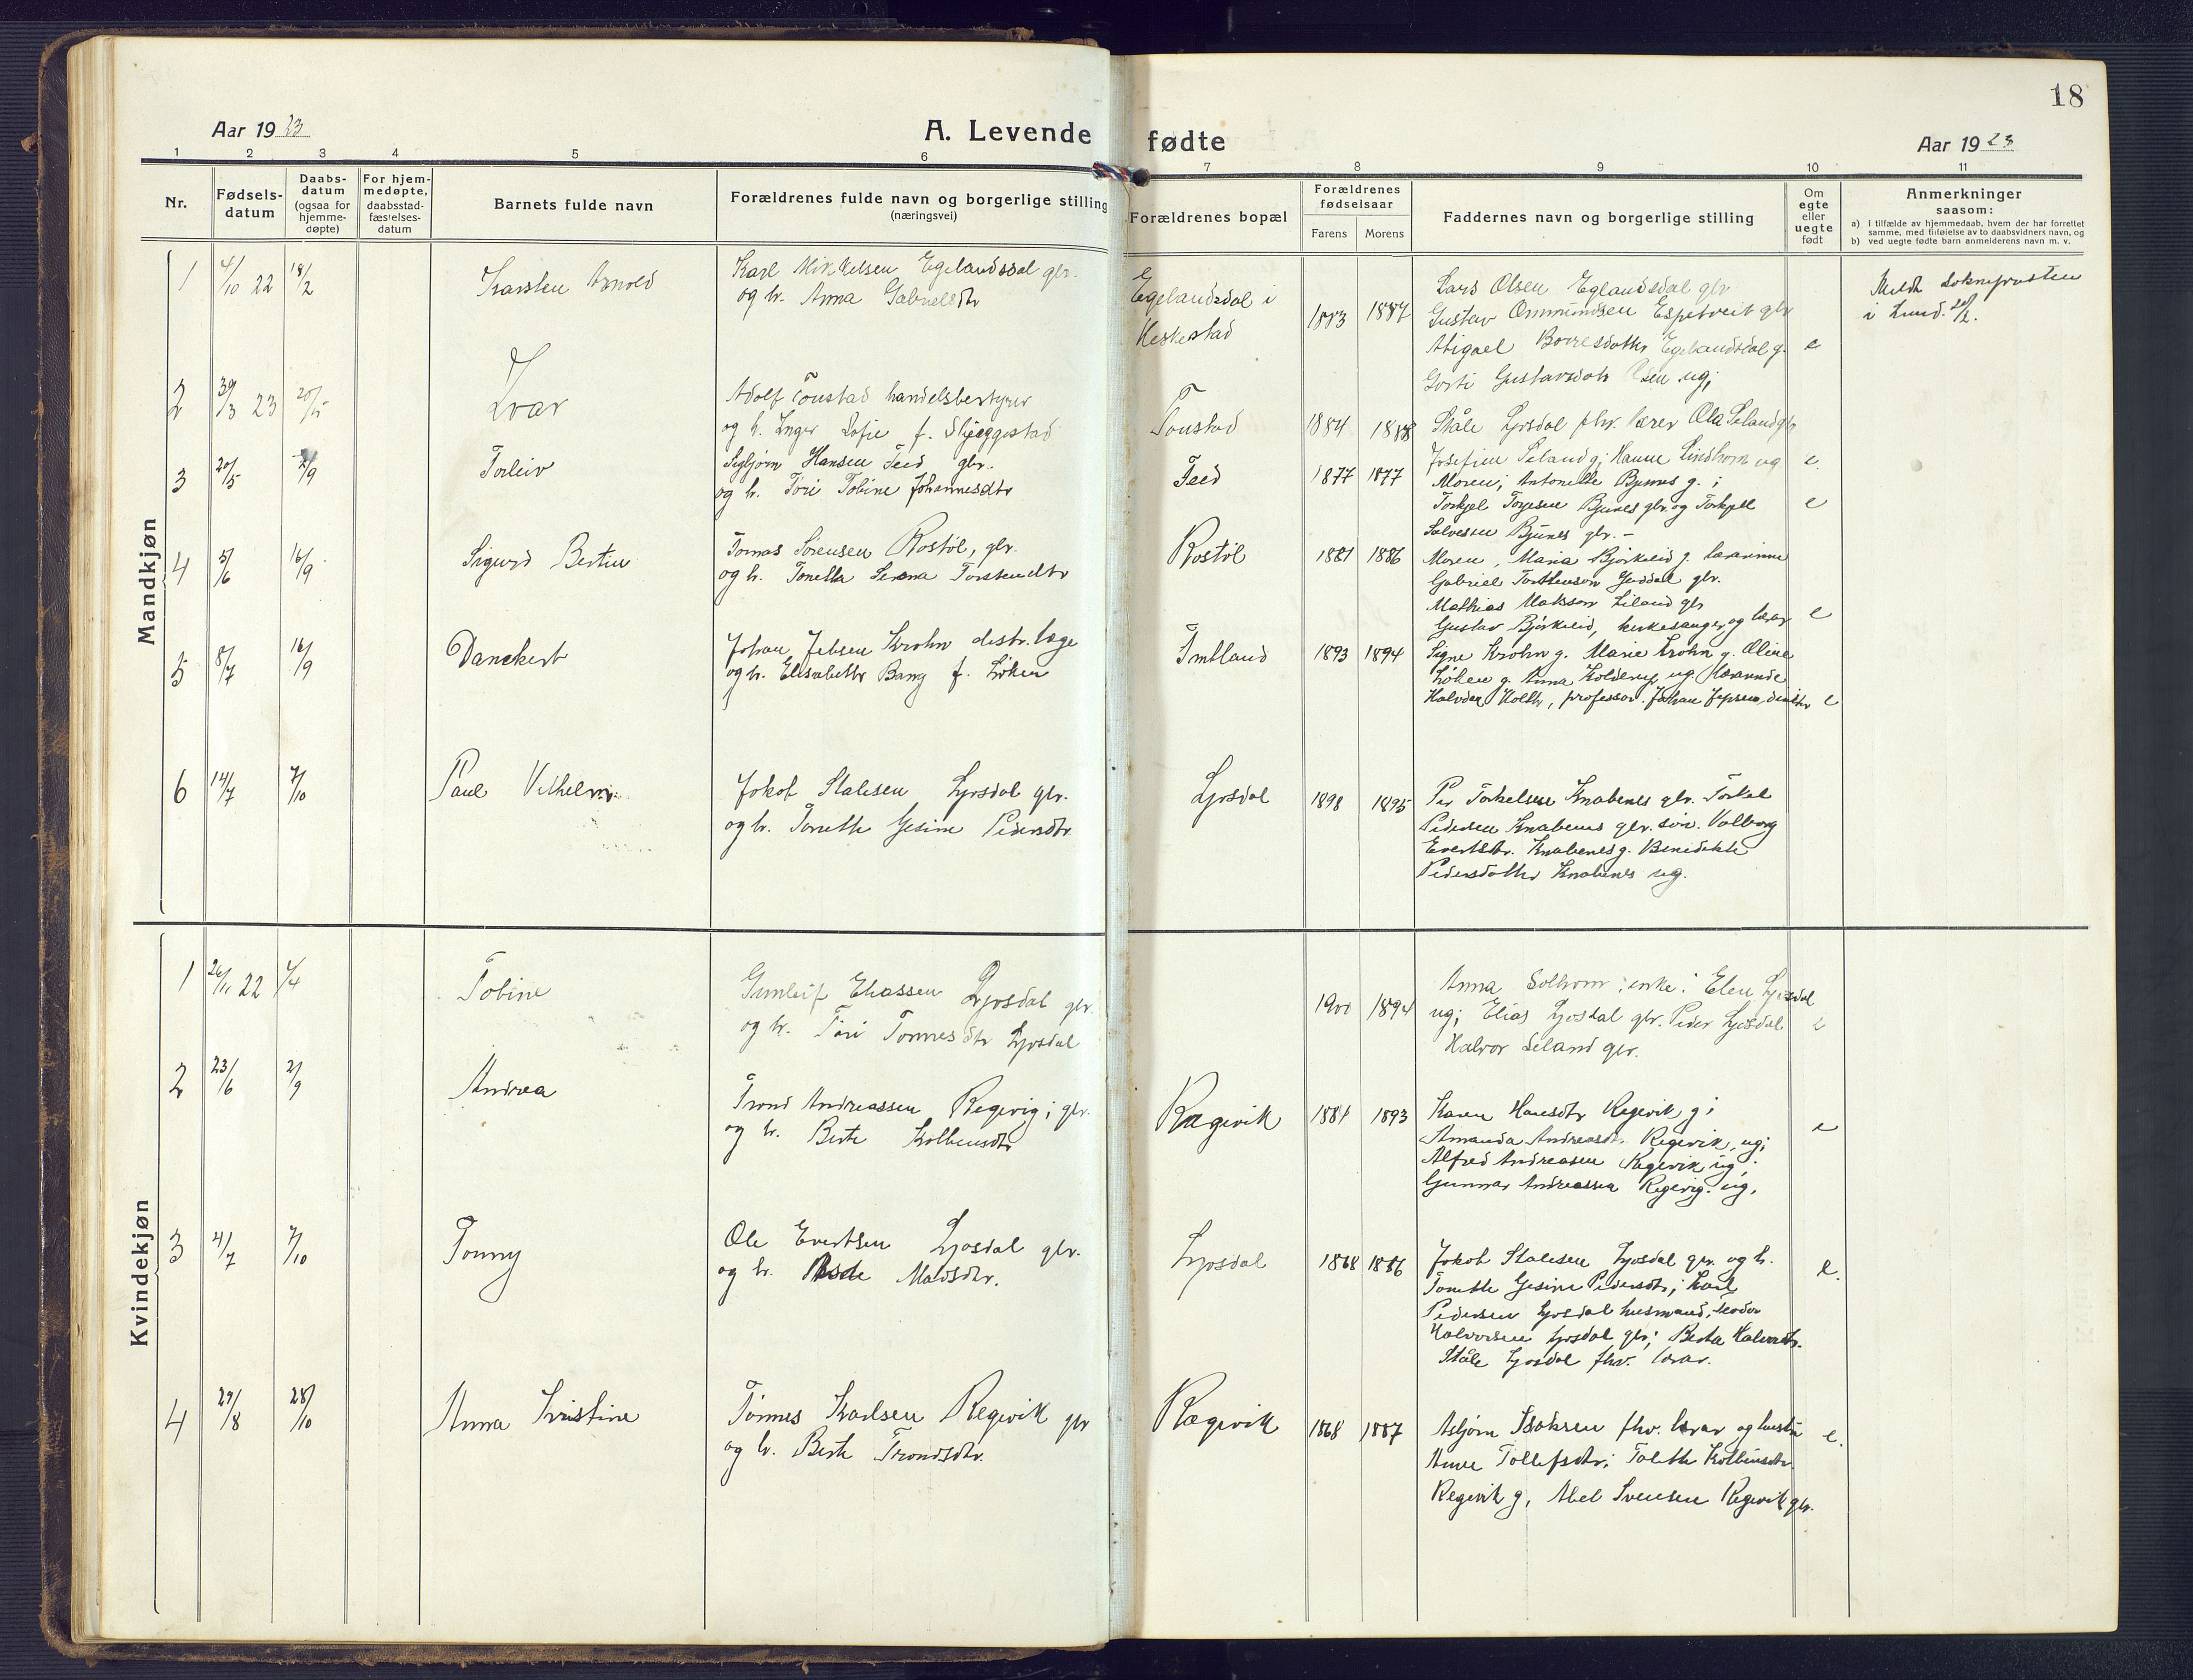 18
Aar 1923
A. Levende fødte
Aar 1923
1 2 3 4 5 6 7 8 9 10 11
Nr.
Fødsels-
datum
Daabs-
datum
(ogsaa for
hjemme-
døpte)
For hjem-
medøpte,
daabsstad-
fæstelses-
datum
Barnets fulde navn
Forældrenes fulde navn og borgerlige stilling
(næringsvei)
Forældrenes bopæl
Forældrenes
fødselsaar
Farens
Morens
Faddernes navn og borgerlige stilling
Om
egte
eller
uegte
født
Anmerkninger
saasom:
a) i tilfælde av hjemmedaab, hvem der har forrettet
samme, med tilføielse av to daabsvidners navn, og
b) ved uegte fødte barn anmelderens navn m. v.
Mandkjøn
1 4/10 22 18/2 Karsten Arnold
Karl Mikkelsen Egelandsdal gbr.
og h. Anna Gabrielsdtr
Egelandsdal i
Heskestad
1883 1887
Lars Olsen Eglandsdal gbr
Gustav Ommundsen Espetveit gbr
Abigael Borresdatter Egelandsdal g.
Gustavsdatr Olsen ug;
e
Meldt sokneprosten
i Lund
2 30/3 23 20/5 Ivar
Adolf Tonstad handelsbestyrer
og h. Inger Sofie f. Skjeggestad
Tonstad
1884 1888
Ståle Ljosdal fhv. lærer Ola Seland gbr
Josefine Seland g; Hanne Lindhom ug
e
3 20/5 2/9 Torleiv
Sigbjørn Hansen Feed gbr.
og h. Tori Tobine Johannesdtr
Feed
1877 1877
Moren; Antonette Bjunes g. ;
Torkjel Torjesen Bjunes gbr og Torkjell
Salvesen Bjunes gbr. -
e
4 5/6 16/9 Sigurd Bertin
Tomas Sørensen Rostøl, gbr.
og h. Tonella Serena Torstendtr
Rostøl
1881 1886
Moren, Maria Bjørkeid g. lærarinne
Gabriel Torstenson Josdal gbr.
Mathias Makson Liland gbr
Gustav Bjørkeid, kirkesanger og lærar
e
5 8/7 16/9 Danckert
Johan Jebsen Krohn distr. læge
og h. Elisabeth Bang f. Løken
Omland
1893 1894
Signe Krohn g. Marie Krohn g. Oline
Løken g. Anna Kolderup ug. lærarinde
Halvdan Holth, professor. Johan Jepsen
e
6 14/7 7/10 Paul Vilhelm
Jakob Stalesen Ljosdal gbr.
og h. Toneth Gesine Pedersdtr
Ljosdal
1898 1895
Per Torkelsen Knabenes gbr. Torkel
Pedersen Knabenes gbr. søn. Valborg
Evertsdtr. Knabenes g. Benedikte
Pedersdatter Knabenes ug.
Kvindekjøn
1 26/11 22 2/4 Tobine
Gunleif Eliassen Ljosdal gbr.
og h. Tori Tonnesdtr Ljosdal
1900 1894
Anna Solhom; enke; Elen Ljosdal
ug; Elias Ljosdal gbr. Peder Ljosdal
Halvor Seland gbr.
e
2 23/6 2/9 Andrea
Trond Andreassen Regevig; gbr.
og h. Berte Kolbensdtr
Rægevik
1881 1893
Karen Hansdtr Regevik g;
Amanda Andreasdtr. Regevik, ug;
Alfred Andreasen Regevik ug;
Gunnar Andreassen Regevig. ug,
e
3 4/7 7/10 Tonny
Ole Evertsen Ljosdal gbr.
og h. Aasde Maldsdtr.
Ljosdal
1868 1886
Jakob Stalesen Ljosdal gbr. og h.
Toneth Gesine Pedersdtr; Karl
Pedersen Ljosdal husmand, Teodor
Halvorsen Ljosdal gbr; Berta Halvorsdtr.
Ståle Ljosdal fhv. lærar.
e.
4 29/8 28/10 Anna Kristine
Tønnes Karlsen Regevik gbr
og h. Berte Trondsdtr.
Rægevik
1868 1887
Asbjørn Isaksen fhv. lærar og hustru
Anne Tollefsdtr; Tolette Kolbensdtr.
Regevik g, Abel Svensen Regevik gbr.
e.